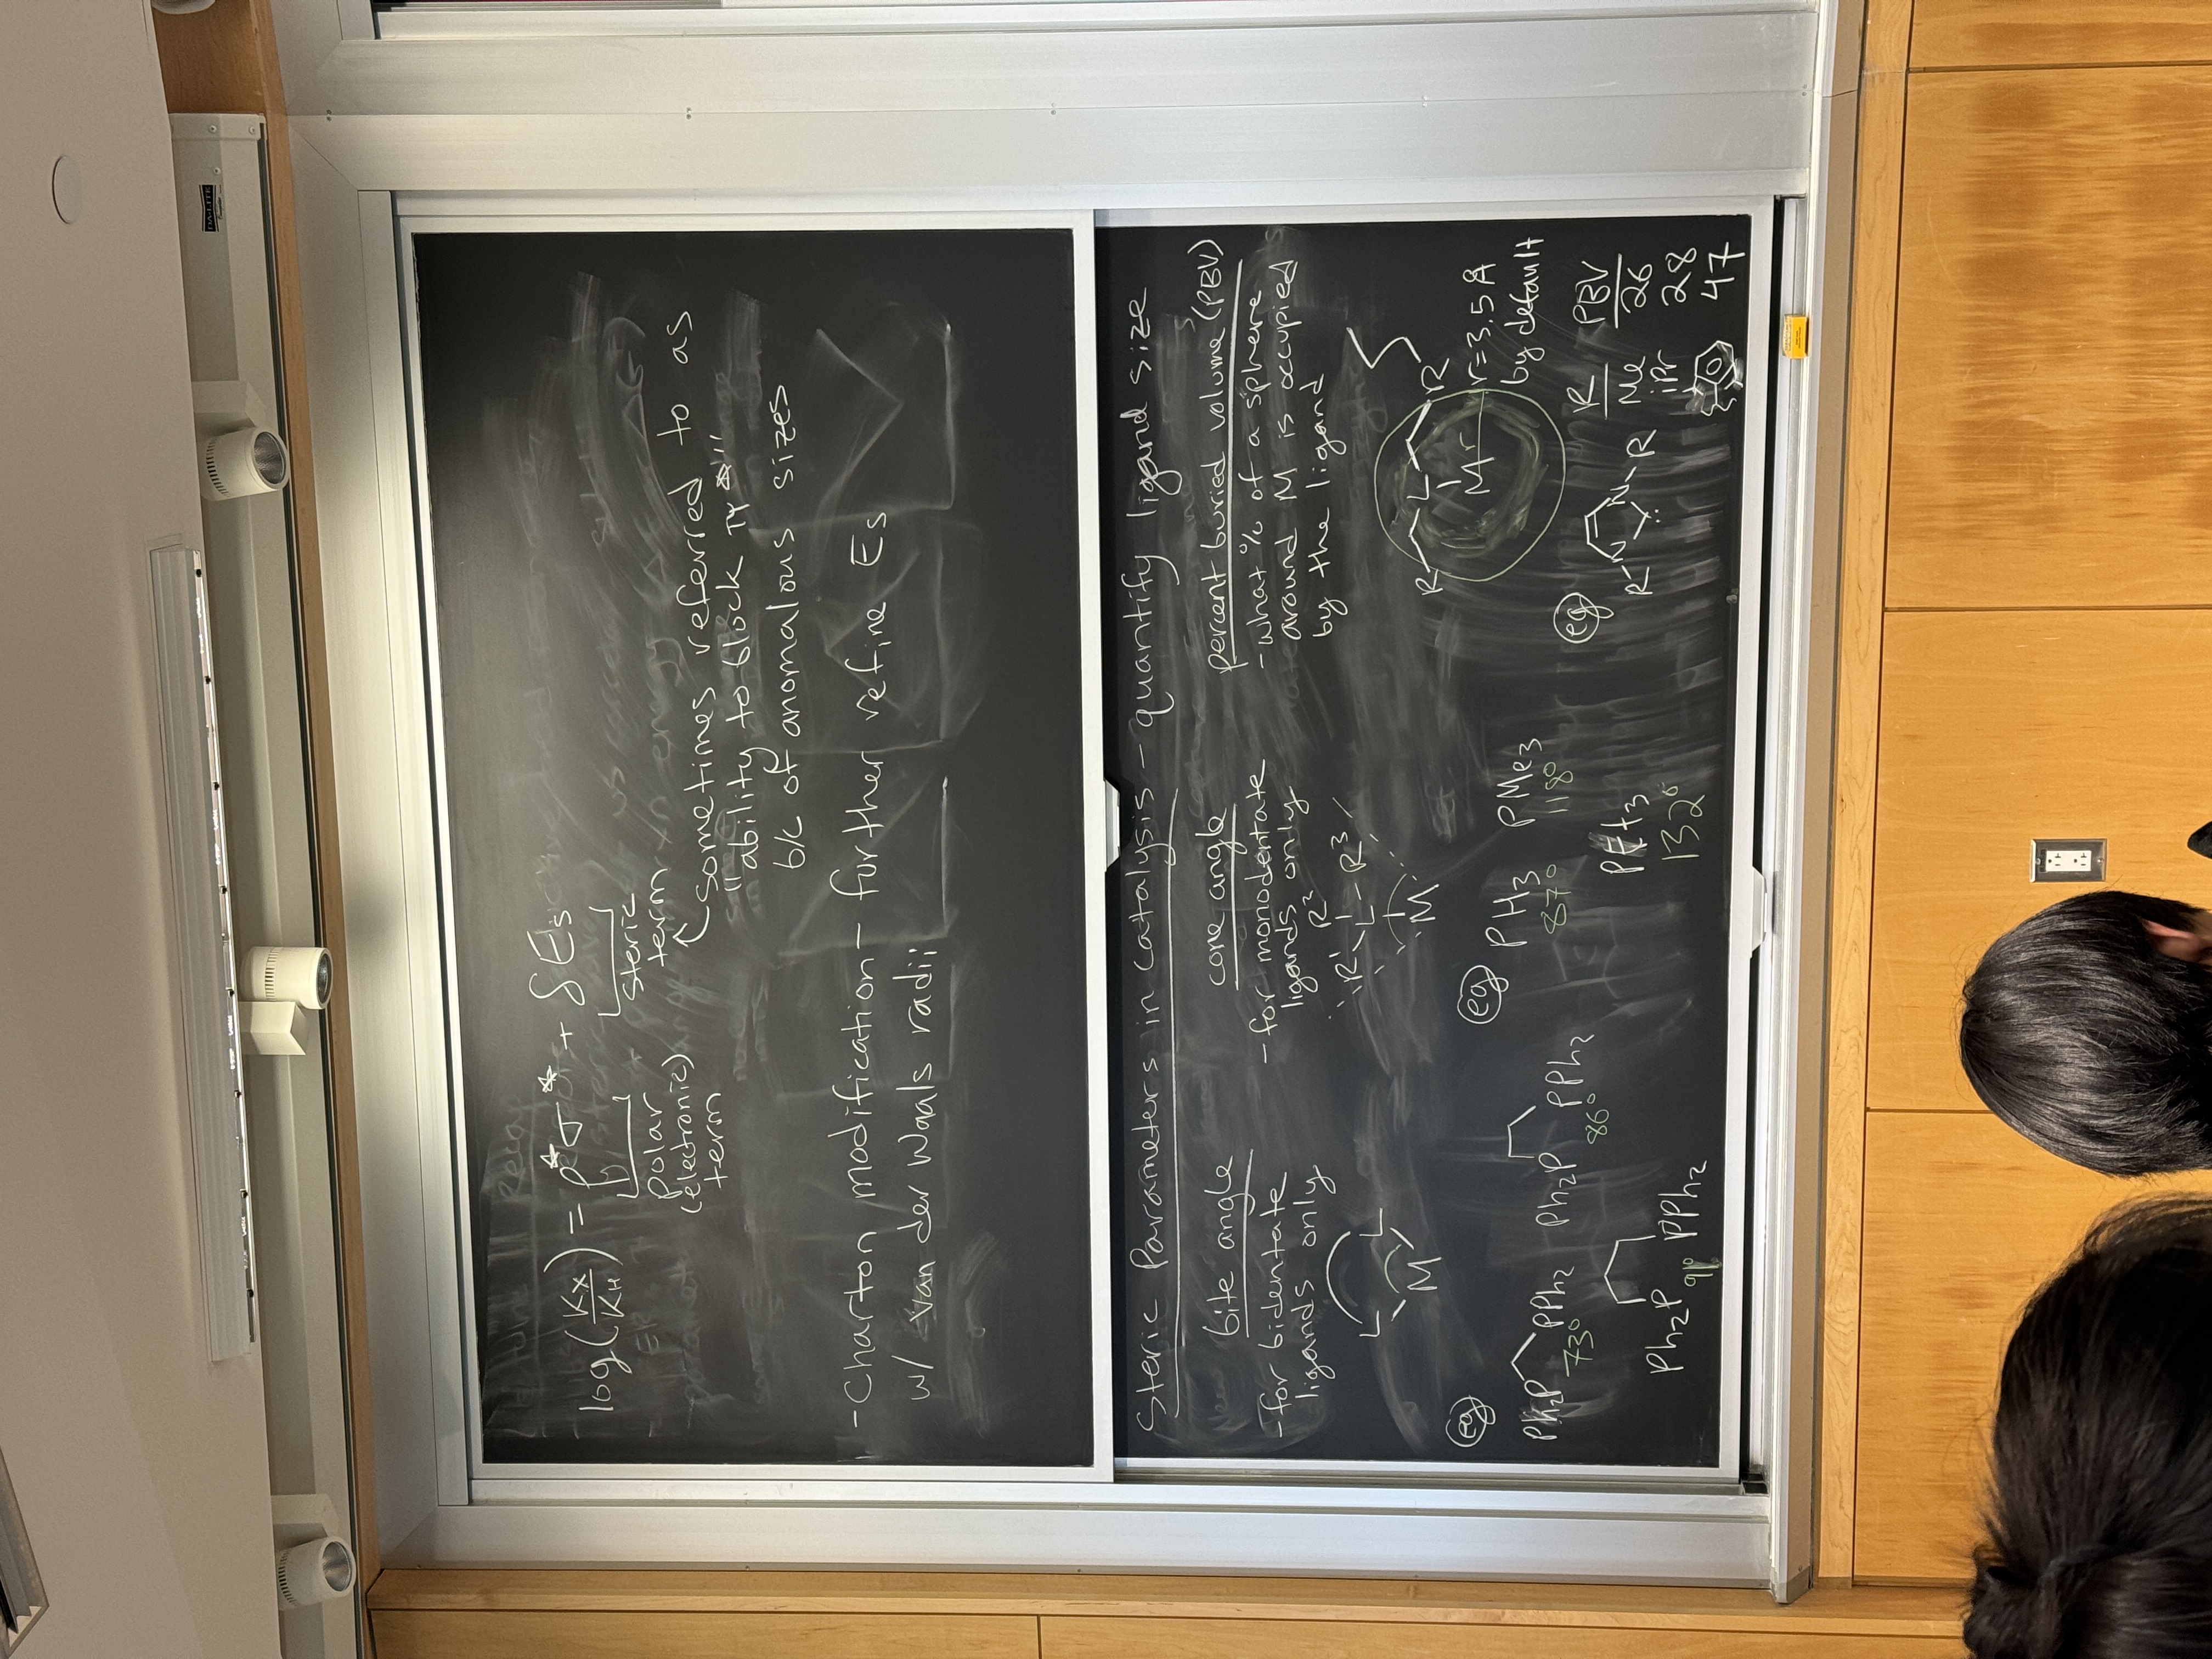 DA-LITE
log(Kx/KH) = ρ*σ* + δEs
polar
(electronic)
term
steric
term
sometimes referred to as
"ability to block π*"
b/c of anomalous sizes
- Charton modification - further refine Es
w/ van der Waals radii
Steric Parameters in Catalysis - quantify ligand size
bite angle
- for bidentate
ligands only
L L
M
eg
Ph2P PPh2
73°
Ph2P PPh2
86°
Ph2P PPh2
91°
cone angle
- for monodentate
ligands only
R²
R¹ L R³
M
eg
PH3 PMe3
87° 118°
PEt3
132°
percent buried volume (PBV)
- what % of a sphere
around M is occupied
by the ligand
R L R
M r
r=3.5 Å
by default
eg
N N
R R
R PBV
Me 26
iPr 28
47